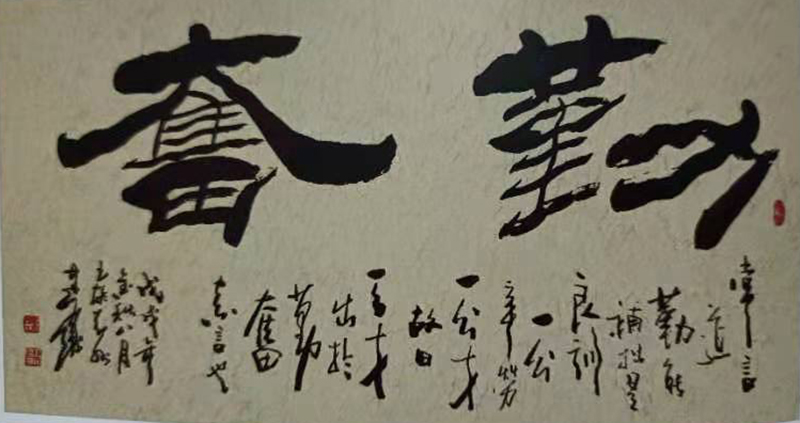 勤奮
常言
道
勤能
補拙是
良訓
一分
辛勞
一分才
故曰
天才
出於
勤
奮
言也
戊戌年
金秋八月